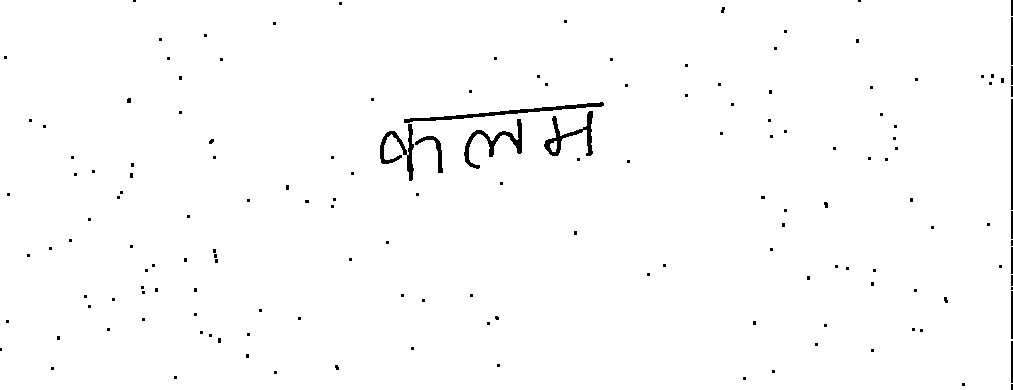 कलम